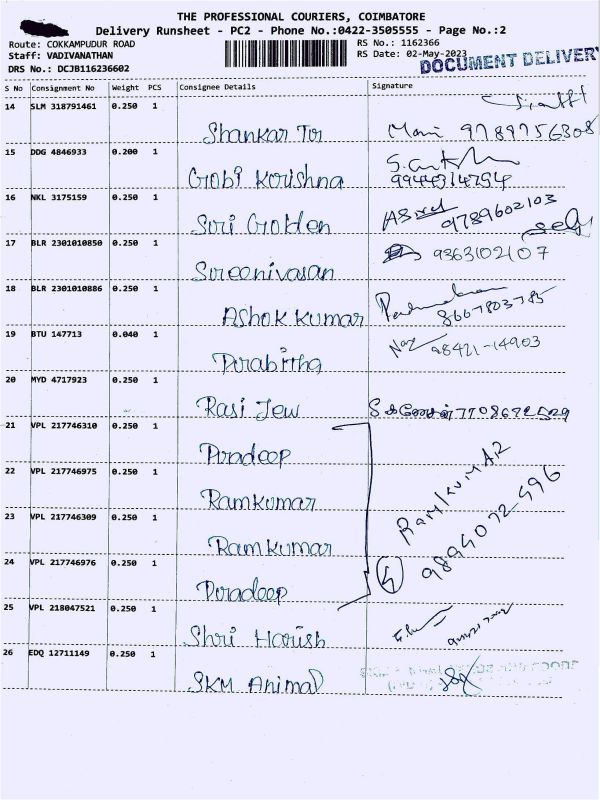 THE PROFESSIONAL COURIERS, COIMBATORE
Delivery Runsheet - PC2 - Phone No.:0422-3505555 - Page No.:2
Route: COKKAMPUDUR ROAD
Staff: VADIVANATHAN
DRS No.: DCJB116236602
RS No.: 1162366
RS Date: 02-May-2023
DOCUMENT DELIVER
S No Consignment No Weight PCS Consignee Details Signature
14 SLM 318791461 0.250 1
Shankar Tor Mani 9789756308
15 DDG 4846933 0.200 1
Gobi Korishna 9944314794
16 NKL 3175159 0.250 1
Sori Golden 9789602103
17 BLR 2301010850 0.250 1
Soreenivasan 9363102107
18 BLR 2301010886 0.250 1
Ashok Kumar 8667803785
19 BTU 147713 0.040 1
Porabitha 98421-14903
20 MYD 4717923 0.250 1
Rasi Jew
21 VPL 217746310 0.250 1
Poradeep
22 VPL 217746975 0.250 1
Ramkumar RAMKUMAR
23 VPL 217746309 0.250 1
Ramkumar 9894072496
24 VPL 217746976 0.250 1
Poradeep
25 VPL 218047521 0.250 1
Shri Harish
26 EDQ 12711149 0.250 1
SKM Animal